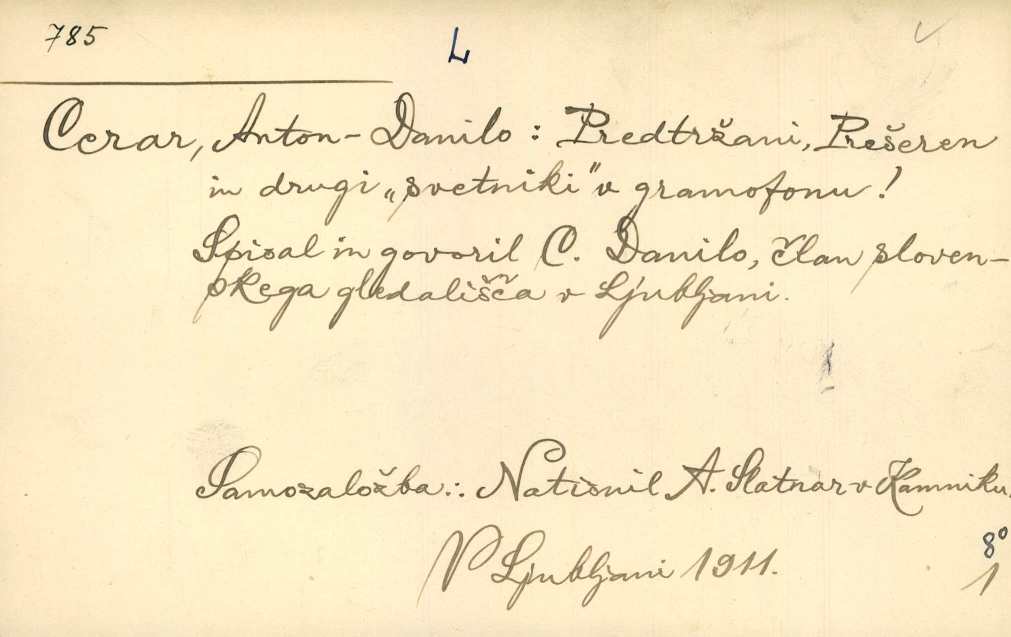 785
L
Cerar, Anton-Danilo: Predtržani, Prešeren
in drugi „svetniki" v gramofonu!
Spisal in govoril C. Danilo, član sloven-
skega gledališča v Ljubljani.
Samozaložba.: Natisnil A. Slatnar v Kamniku.
V Ljubljani 1911.
8º
1